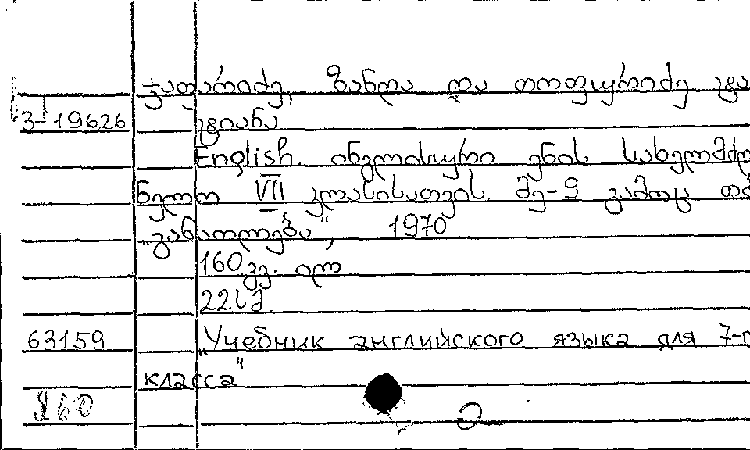 ჯაფარიძე, ზანდა და თოფურიძე
3-19626
English. ინგლისური ენის სახელმძღ
ნელო VII კლასისათვის. მე-9 გამოც თბ
განათლება", 1970
160 გვ. ილ
22 სმ.
63159 „Учебник английского языка для 7-г
класса"
260